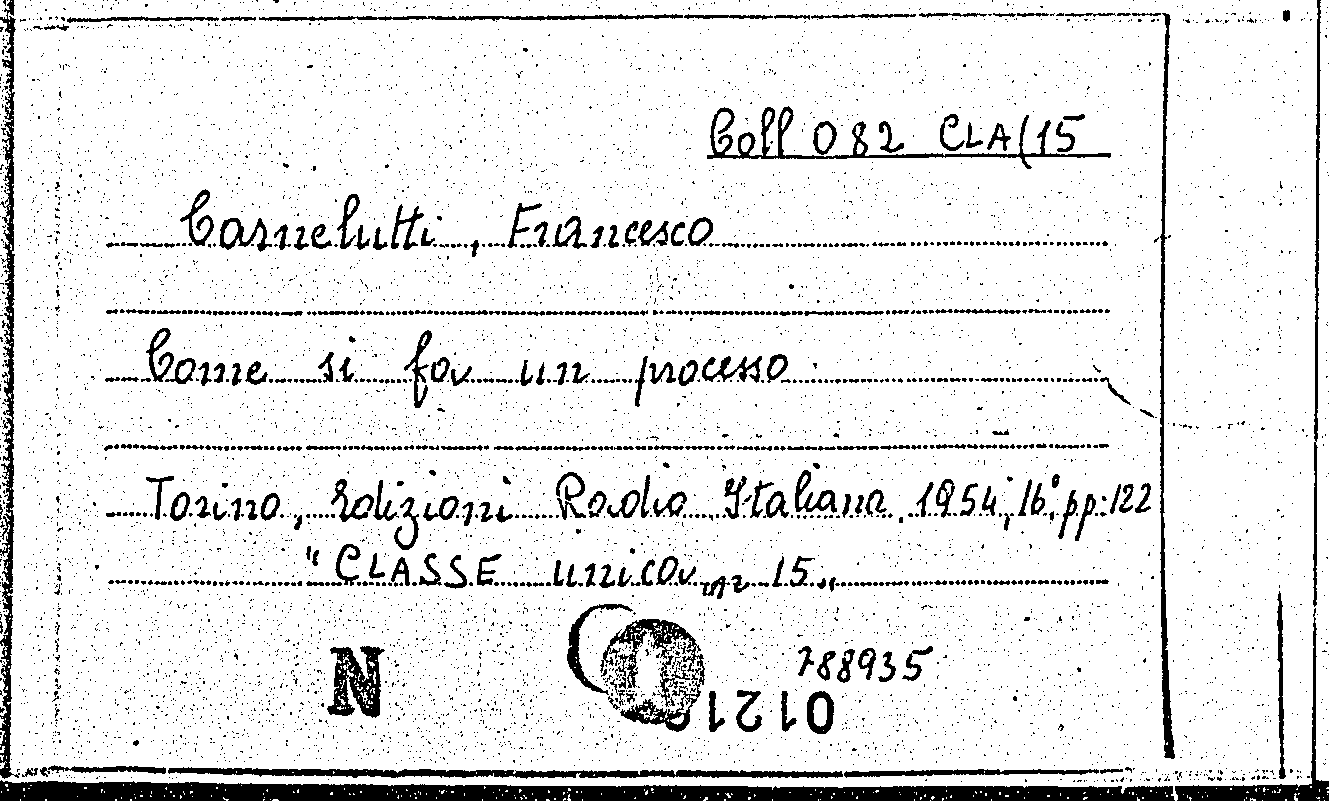 Coll 082 CLA(15
Carnelutti, Francesco
Come si fa un processo
Torino, Edizioni Radio Italiana, 1954, 16°, pp. 122
"CLASSE unica, n 15"
788935
N